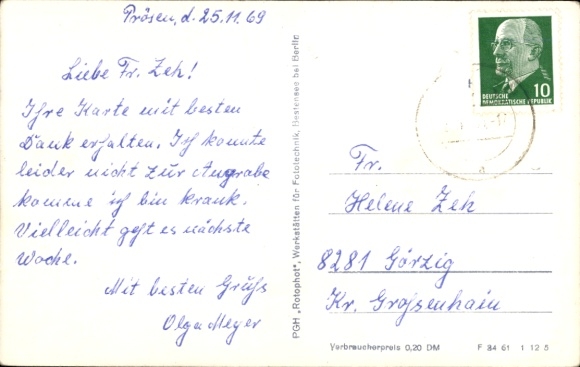 Prösen, d. 25.11.69
Liebe Fr. Zeh!
Ihre Karte mit besten
Dank erhalten. Ich konnte
leider nicht zur Angabe
komme ich bin krank.
Vielleicht geht es nächste
Woche.
Mit besten Grüß
Olga Meyer
PGH „Rotophot“, Werkstätten für Fototechnik, Bestensee bei Berlin
10
DEUTSCHE
DEMOKRATISCHE REPUBLIK
Fr.
Helene Zeh
8281 Görzig
Kr. Großenhain
Verbraucherpreis 0,20 DM F 34 61 1 12 5